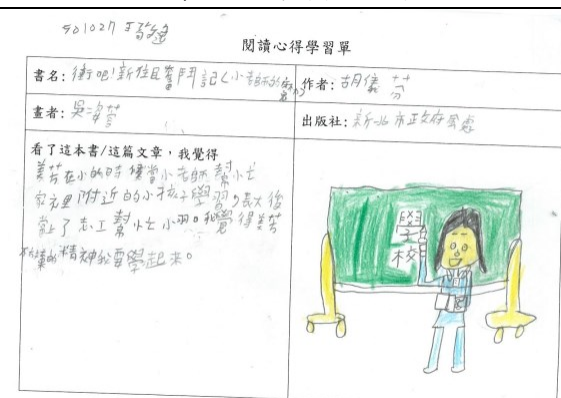 閱讀心得學習單
書名：衝吧！新住民奮鬥記（小老師的
作者：胡儀芬
畫者：吳姿萱
出版社：新北市政府
看了這本書/這篇文章，我覺得
美芳在小的時候當小老師幫忙
家裡附近的小孩子學習，長大後
當了志工幫忙
我覺得美芳
的精神我要學起來。
學校